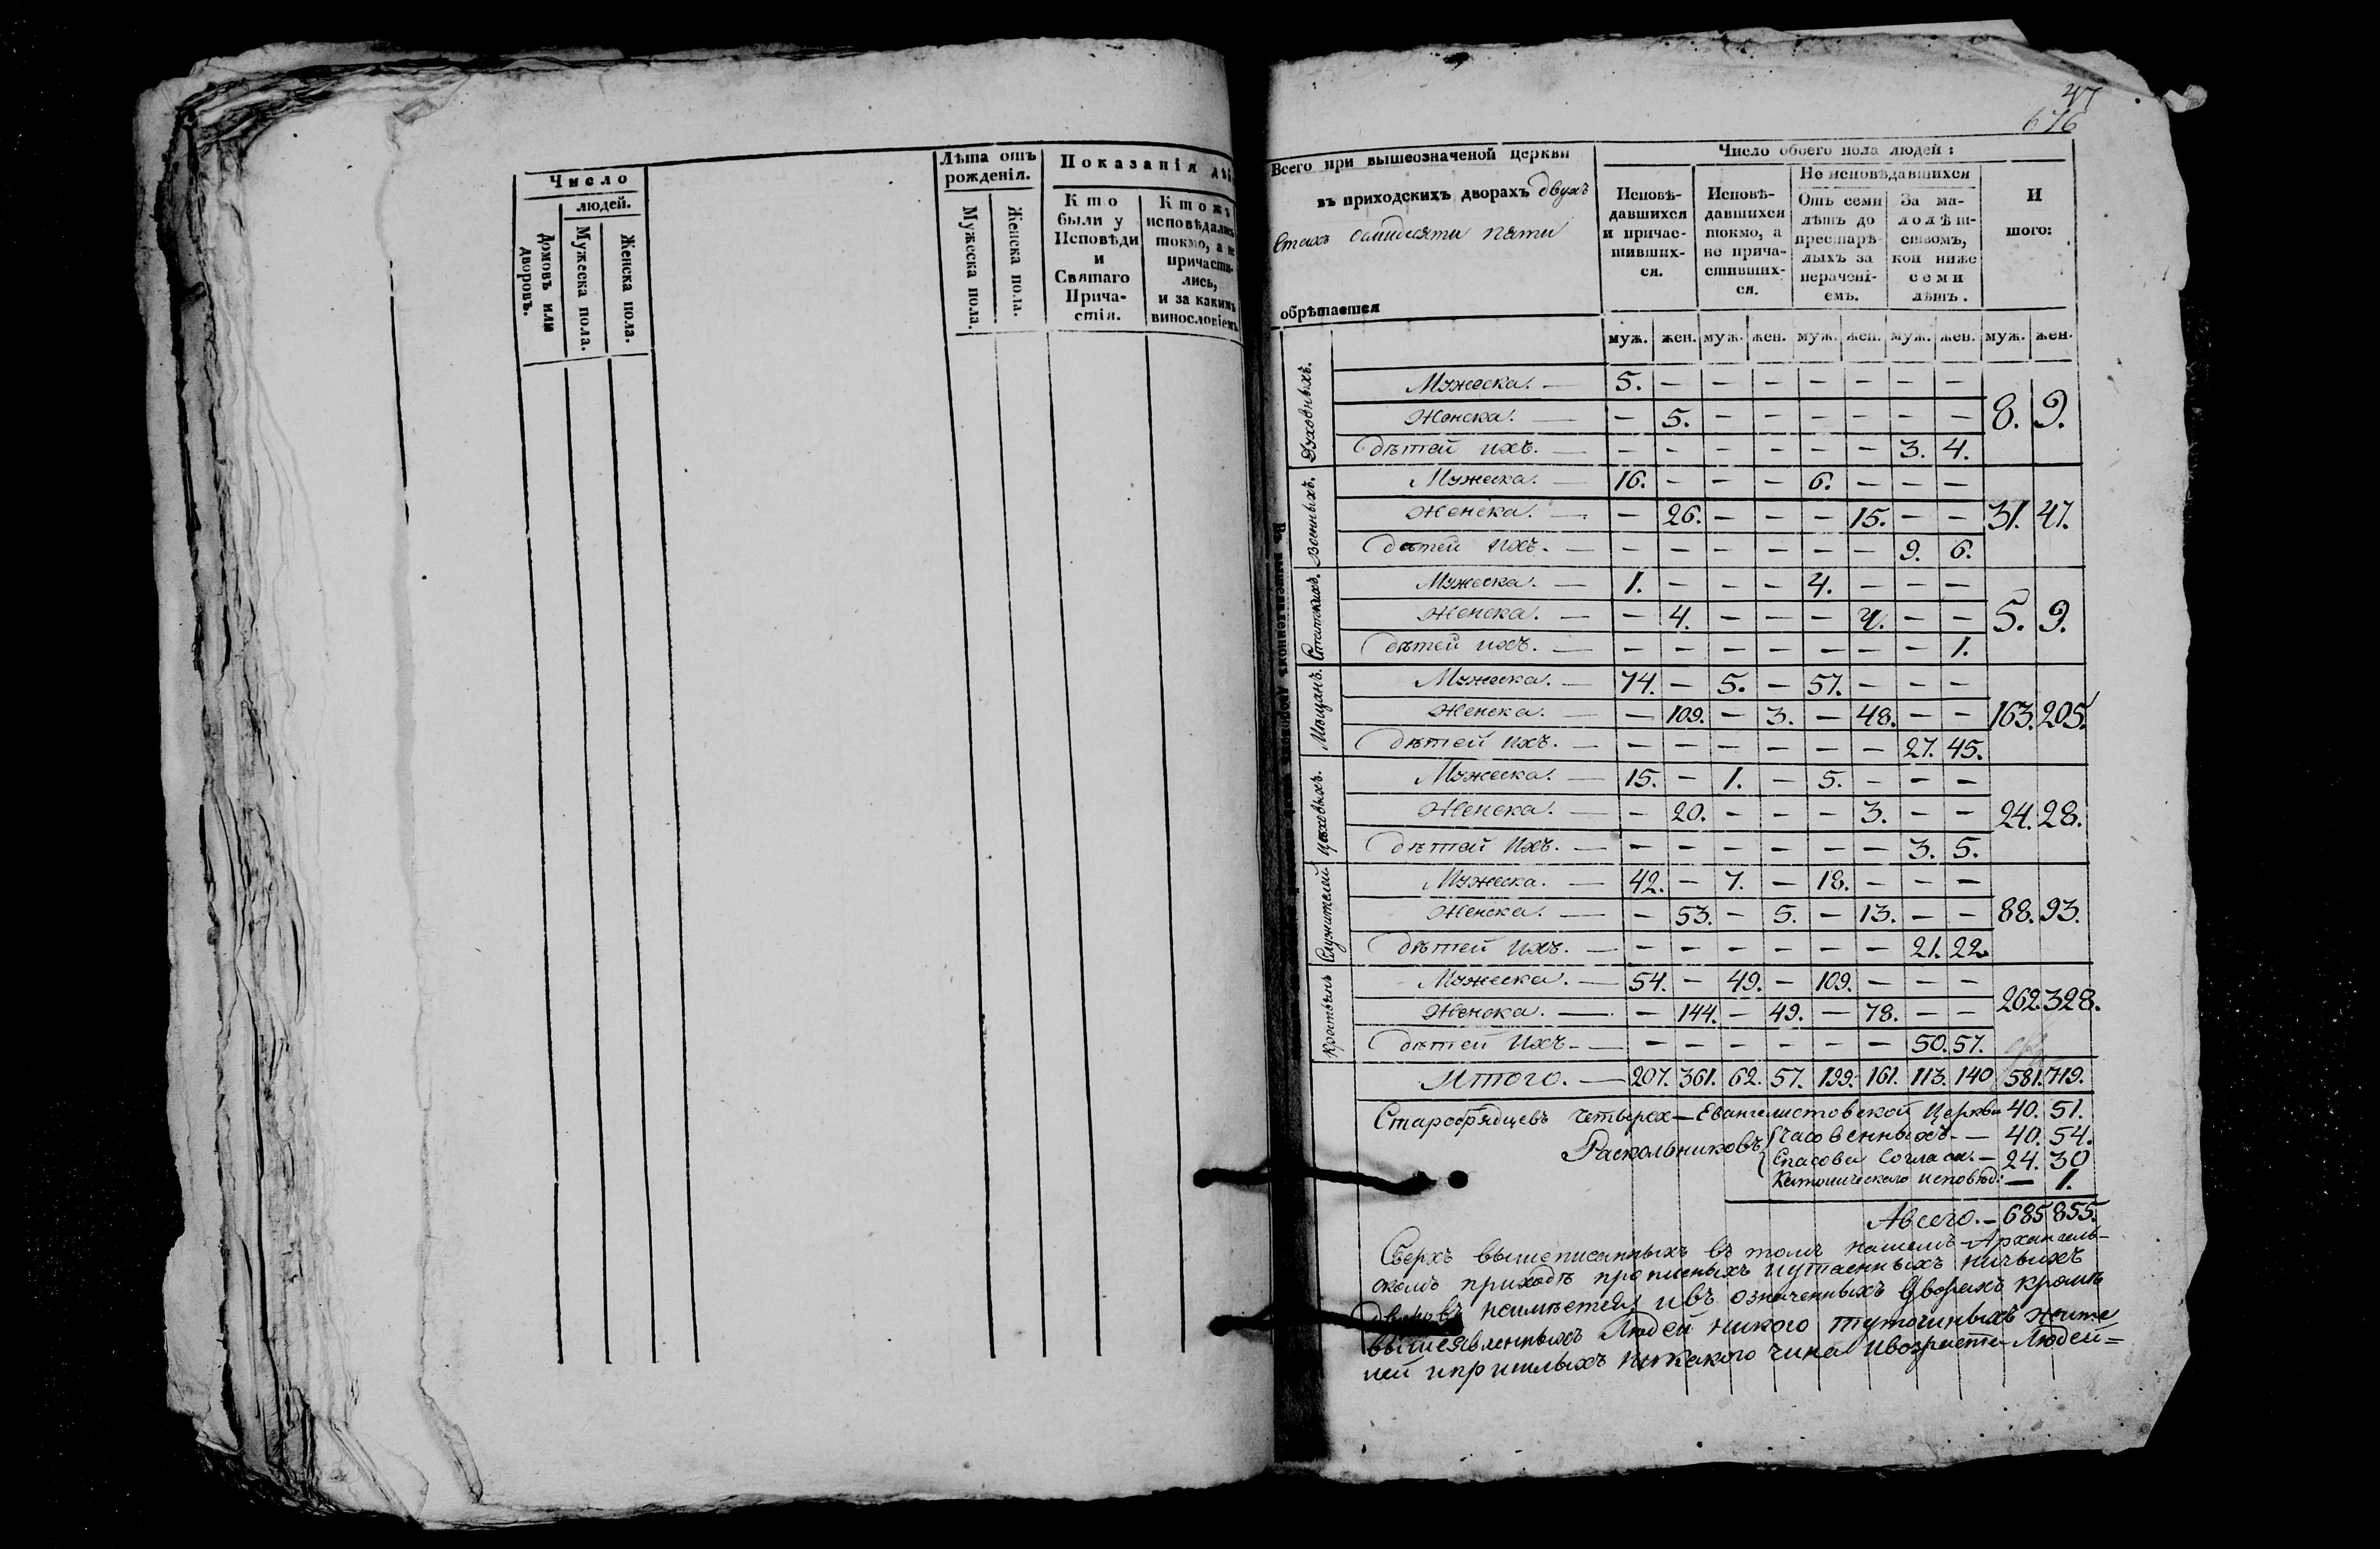 Число
людей.
Домовъ или дворовъ.
Мужеска пола.
Женска пола.
Лѣта отъ
рожденія.
Мужеска пола.
Женска пола.
Показанія
Кто
были у
Исповѣди
и
Святаго
Прича-
стія.
Ктожъ
исповѣдались
токмо, а не
причасти-
лись,
и за какимъ
винословіемъ
47
676
Всего при вышеозначеной церкви
въ приходскихъ дворахъ двухъ
стахъ пяти
обрѣтается
Число обоего пола людей:
Исповѣ-
давшихся
и причас-
тивших-
ся.
Исповѣ-
давшихся
токмо, а
не прича-
стивших-
ся.
Не исповѣдавшихся
Отъ семи
лѣтъ до
престарѣ-
лыхъ за
нерачені-
емъ.
За ма-
лолѣт-
ствомъ,
кои ниже
семи
лѣтъ.
И
того:
муж. жен. муж. жен. муж. жен. муж. жен. муж. жен.
Духовныхъ.
Мужеска. — 5. — — — — — — —
Женска. — — 5. — — — — — — 8. 9.
дѣтей ихъ. — — — — — — — 3. 4.
Военныхъ.
Мужеска. — 16. — — — 6. — — —
Женска. — — 26. — — — 15. — — 31. 47.
дѣтей ихъ. — — — — — — — 9. 6.
Статскихъ.
Мужеска. — 1. — — — 4. — — —
Женска. — — 4. — — — 4. — — 5. 9.
дѣтей ихъ. — — — — — — — — 1.
Мѣщанъ.
Мужеска. — 74. — 5. — 57. — — —
Женска. — — 109. — 3. — 48. — — 163. 205.
дѣтей ихъ. — — — — — — — 27. 45.
Цѣховыхъ.
Мужеска. — 15. — 1. — 5. — — —
Женска. — — 20. — — — 3. — — 24. 28.
дѣтей ихъ. — — — — — — — 3. 5.
Служителей
Мужеска. — 42. — 7. — 18. — — —
Женска. — — 53. — 5. — 13. — — 88. 93.
дѣтей ихъ. — — — — — — — 21. 22.
Крестьянъ
Мужеска. — 54. — 49. — 109. — — —
Женска. — — 144. — 49. — 78. — — 262. 328.
дѣтей ихъ. — — — — — — — 50. 57.
Итого. — 207. 361. 62. 57. 199. 161. 113. 140 581. 719.
Старобрядцевъ Четырех-Евангелистовской Церкви 40. 51.
Раскольниковъ { Часовенныхъ. — 40. 54.
Спасова Согласи. — 24. 30
Католическаго исповѣд: — 1.
Авсего. — 685 855.
Сверхъ вышеписанныхъ въ томъ нашемъ Архангель-
скомъ приходѣ прописныхъ иутаенныхъ ничьихъ
дворовъ неимѣется, ивъ означенныхъ дворахъ кромѣ
вышеявленныхъ Людей никого тутошныхъ жите
лей ипришлыхъ никакого чина ивозраста Людей=